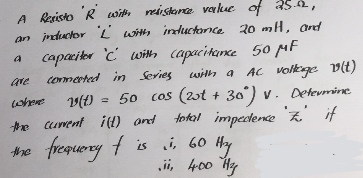 A Resisto 'R' with resistance value of 25Ω,
an inductor 'L' with inductance 20 mH, and
a capacitor 'C' with capacitance 50 μF
are connected in series with a AC voltage v(t)
where v(t) = 50 cos (2πt + 30°) V. Determine
the current i(t) and total impedence 'Z' if
the frequency f is i, 60 Hz
ii, 400 Hz